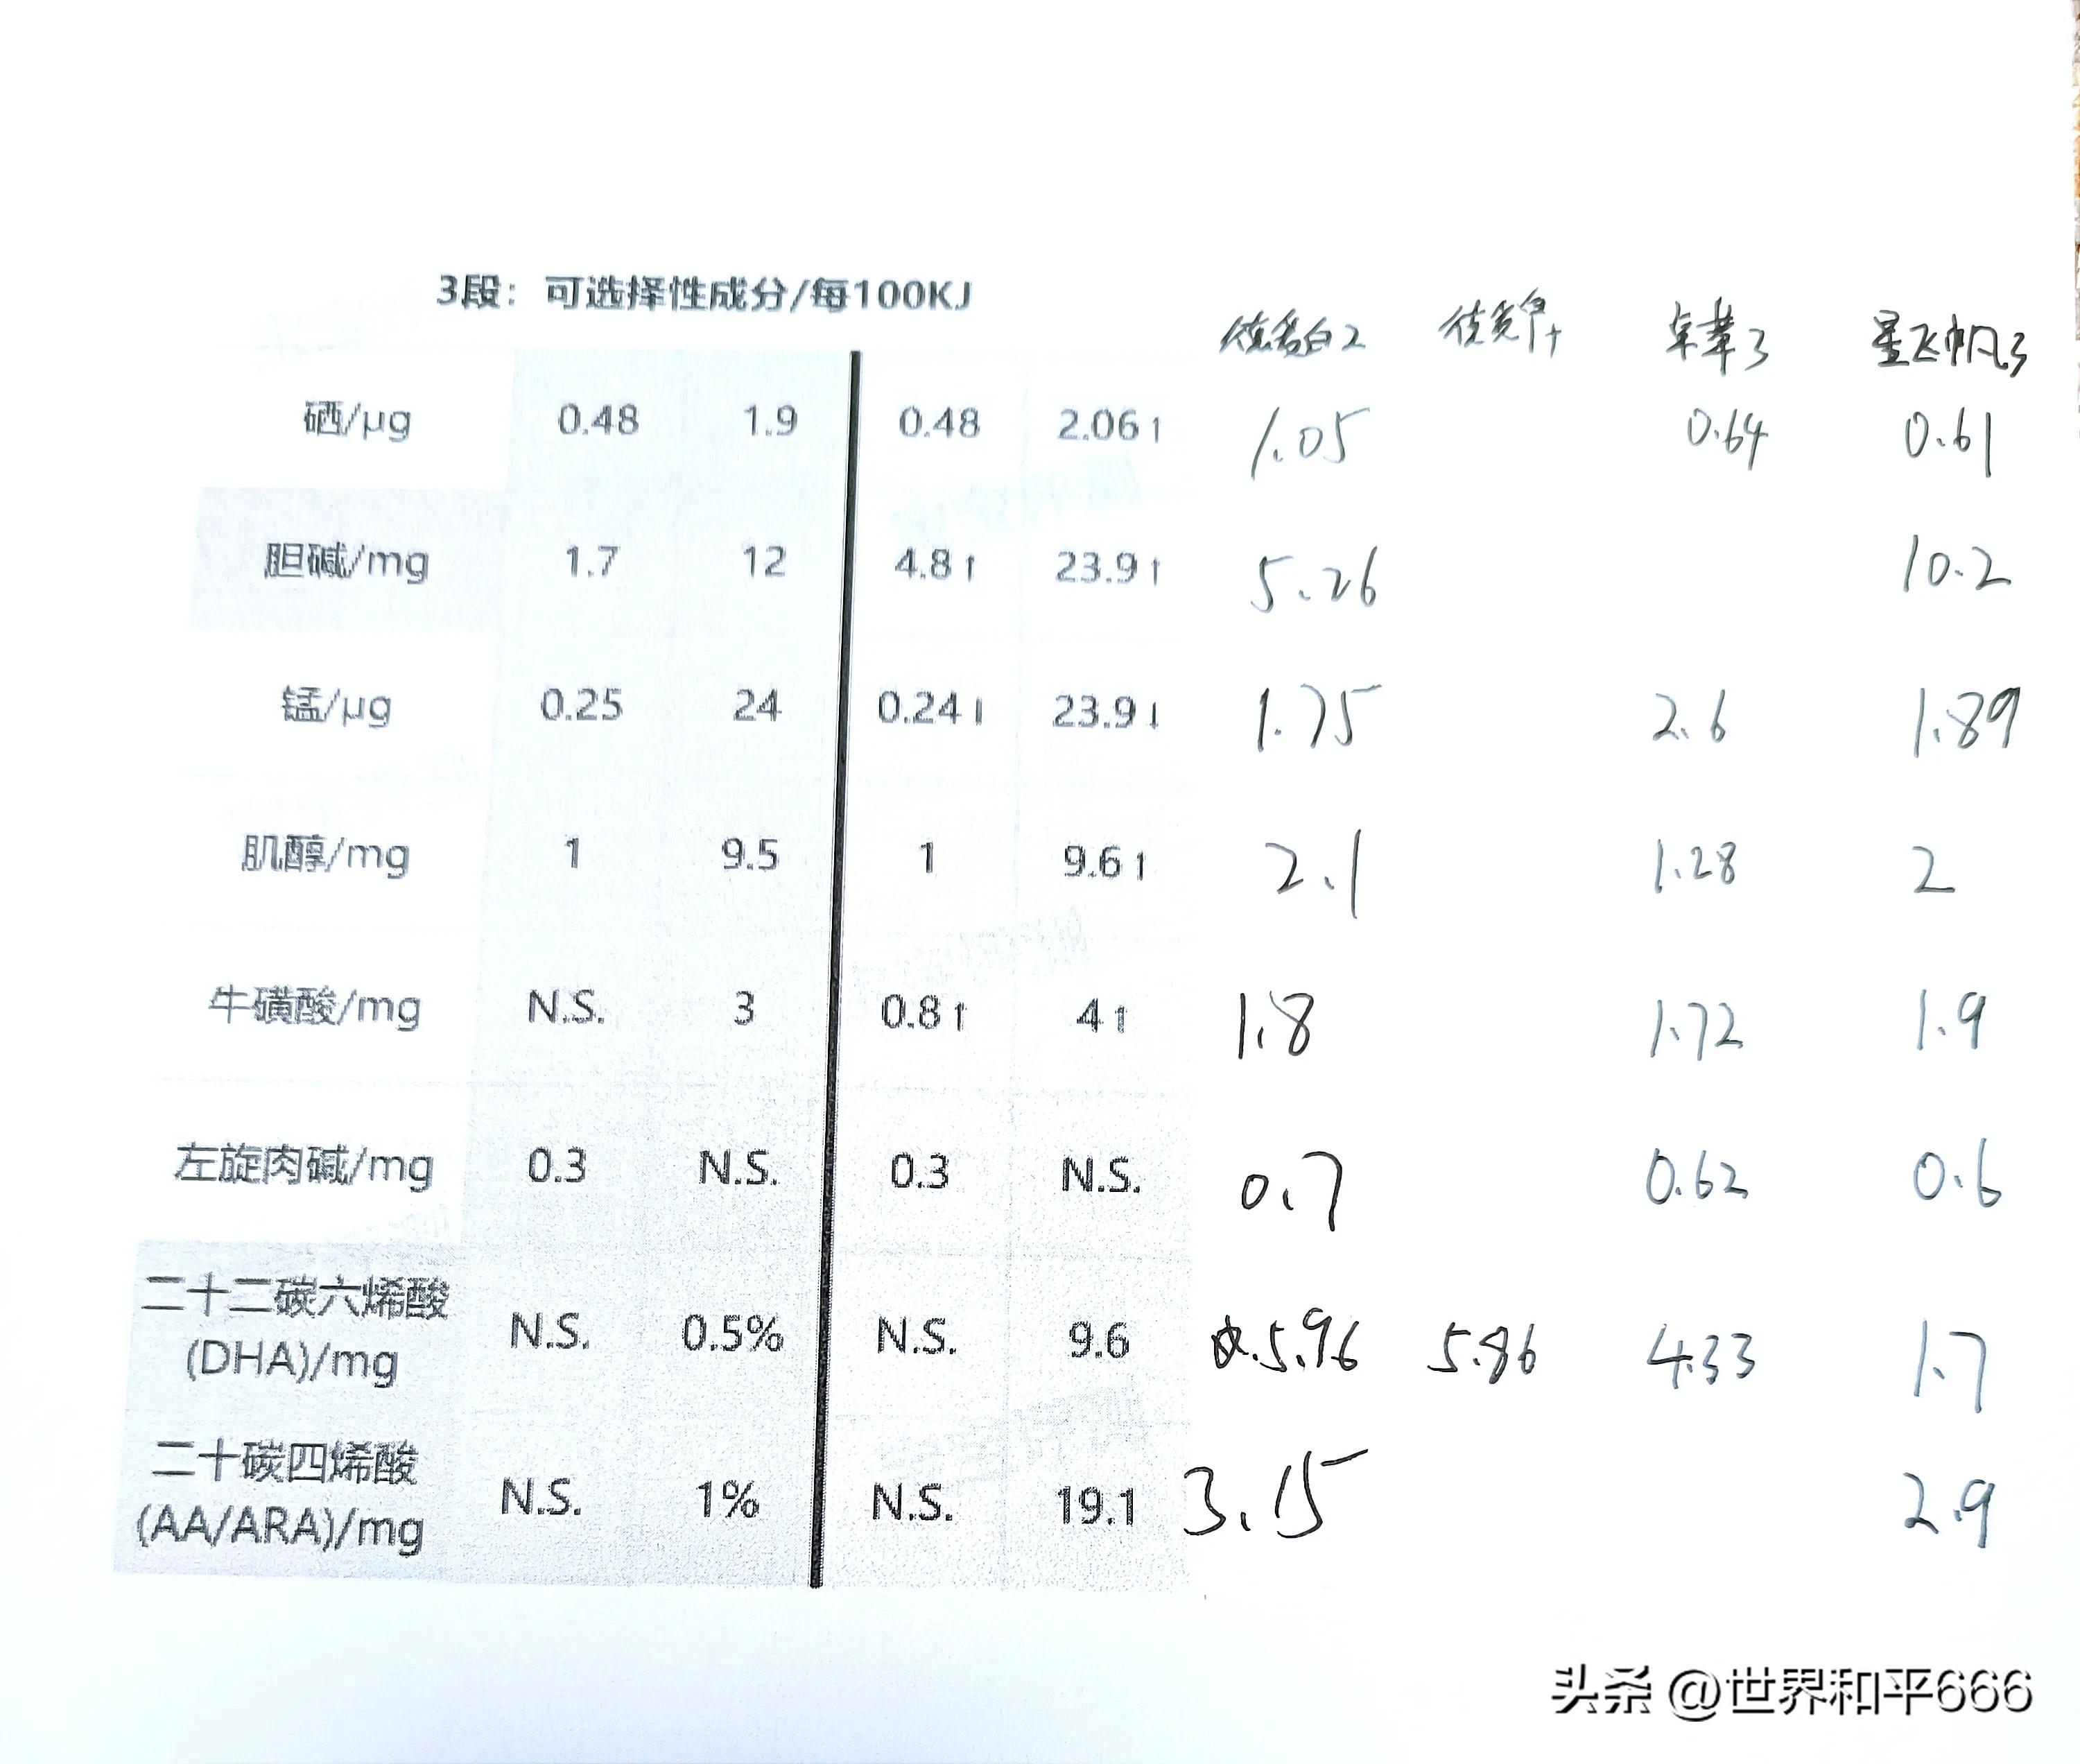 3段：可选择性成分/每100KJ
2 卓萃3 星飞帆3
硒/μg 0.48 1.9 0.48 2.06↑ 1.05 0.64 0.61
胆碱/mg 1.7 12 4.8↑ 23.9↑ 5.26 10.2
锰/μg 0.25 24 0.24↓ 23.9↓ 1.75 2.6 1.89
肌醇/mg 1 9.5 1 9.6↑ 2.1 1.28 2
牛磺酸/mg N.S. 3 0.8↑ 4↑ 1.8 1.72 1.9
左旋肉碱/mg 0.3 N.S. 0.3 N.S. 0.7 0.62 0.6
二十二碳六烯酸
(DHA)/mg N.S. 0.5% N.S. 9.6 5.96 5.86 4.33 1.7
二十碳四烯酸
(AA/ARA)/mg N.S. 1% N.S. 19.1 3.15 2.9
头条 @世界和平666